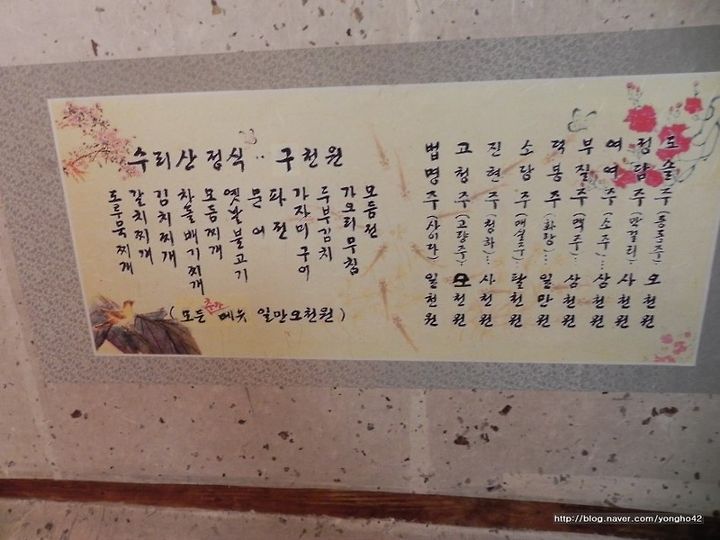 도솔주 (동동주)... 오천원
정담주 (막걸리)... 사천원
여여주 (소주)... 삼천원
부질주 (맥주)... 삼천원
(화랑)... 일만원
소담주 (매실주)... 팔천원
진현주 (청하)... 사천원
고청주 (고량주)... 오천원
법명주 (사이다)... 일천원
수리산 정식 .. 구천원
모듬전
가오리무침
두부김치
가자미구이
파전
문어
옛날불고기
모듬찌개
차돌배기찌개
김치찌개
갈치찌개
도루묵찌개
(모든 메뉴 일만오천원)
http://blog.naver.com/yongho42